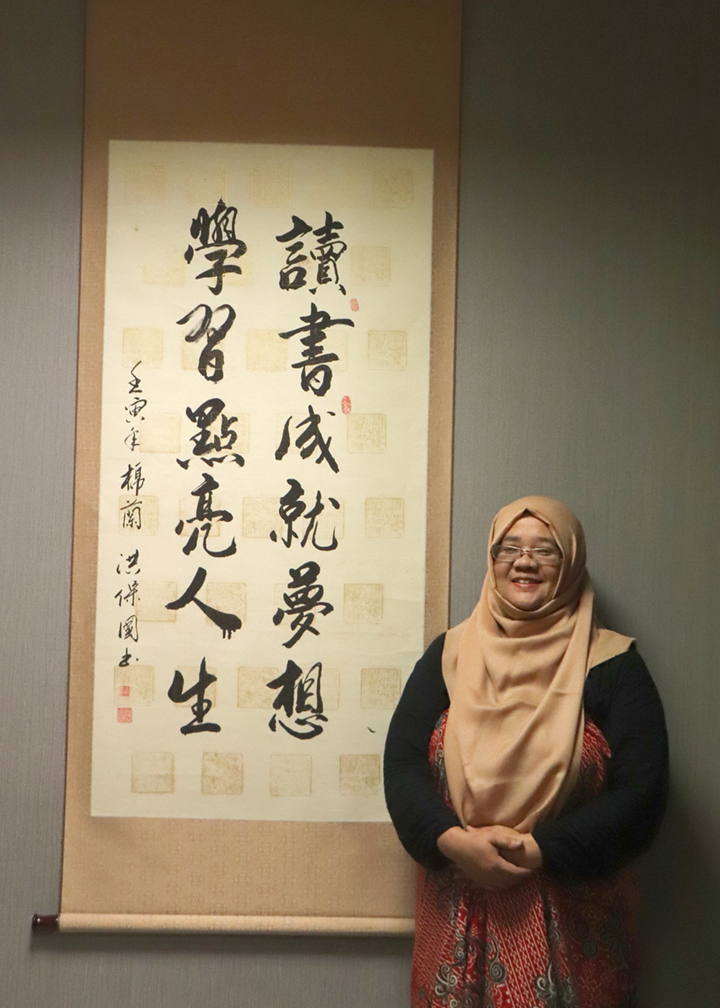 讀書成就夢想
學習點亮人生
壬寅年 棉蘭 洪保國書